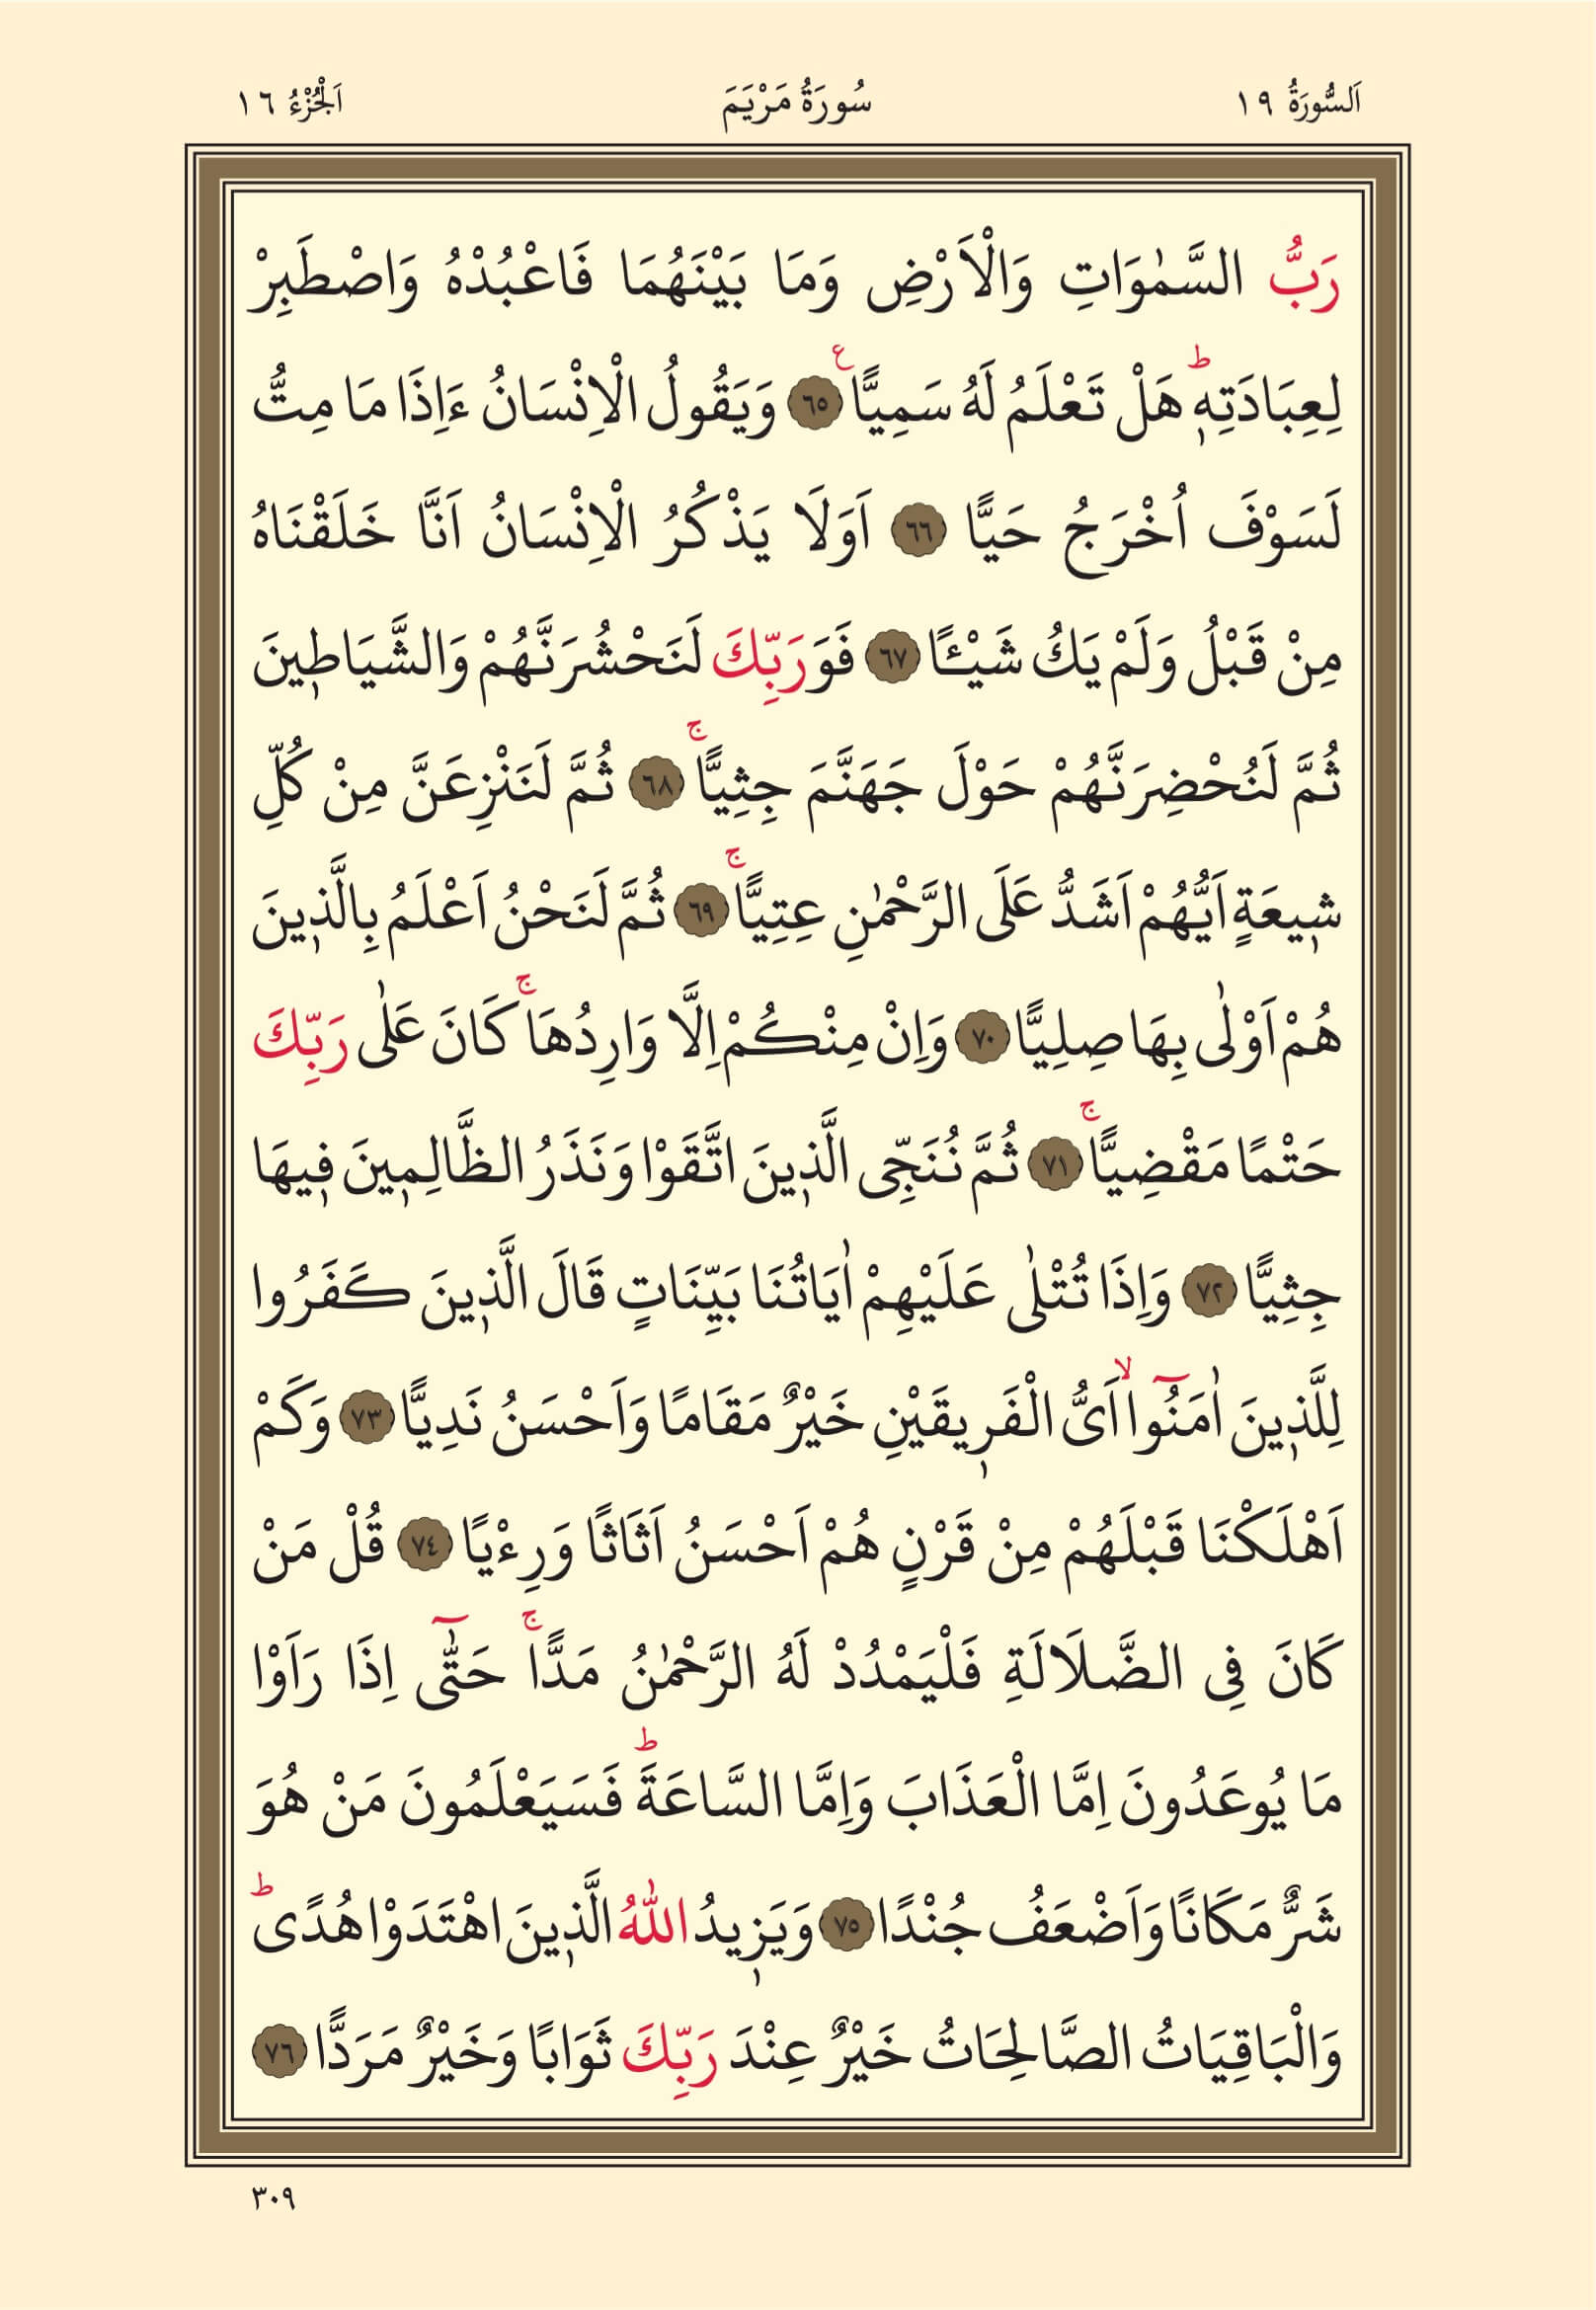 اَلسُّورَةُ ١٩ سُورَةُ مَرْيَمَ اَلْجُزْءُ ١٦
رَبُّ السَّمٰوَاتِ وَالْاَرْضِ وَمَا بَيْنَهُمَا فَاعْبُدْهُ وَاصْطَبِرْ
لِعِبَادَتِهٖؕ هَلْ تَعْلَمُ لَهُ سَمِيًّاع ٦٥ وَيَقُولُ الْاِنْسَانُ ءَاِذَا مَا مِتُّ
لَسَوْفَ اُخْرَجُ حَيًّا ٦٦ اَوَلَا يَذْكُرُ الْاِنْسَانُ اَنَّا خَلَقْنَاهُ
مِنْ قَبْلُ وَلَمْ يَكُ شَيْـًٔا ٦٧ فَوَرَبِّكَ لَنَحْشُرَنَّهُمْ وَالشَّيَاطٖينَ
ثُمَّ لَنُحْضِرَنَّهُمْ حَوْلَ جَهَنَّمَ جِثِيًّاۚ ٦٨ ثُمَّ لَنَنْزِعَنَّ مِنْ كُلِّ
شٖيعَةٍ اَيُّهُمْ اَشَدُّ عَلَى الرَّحْمٰنِ عِتِيًّاۚ ٦٩ ثُمَّ لَنَحْنُ اَعْلَمُ بِالَّذٖينَ
هُمْ اَوْلٰى بِهَا صِلِيًّا ٧٠ وَاِنْ مِنْكُمْ اِلَّا وَارِدُهَاۚ كَانَ عَلٰى رَبِّكَ
حَتْمًا مَقْضِيًّاۚ ٧١ ثُمَّ نُنَجِّى الَّذٖينَ اتَّقَوْا وَنَذَرُ الظَّالِمٖينَ فٖيهَا
جِثِيًّا ٧٢ وَاِذَا تُتْلٰى عَلَيْهِمْ اٰيَاتُنَا بَيِّنَاتٍ قَالَ الَّذٖينَ كَفَرُوا
لِلَّذٖينَ اٰمَنُٓواۙ اَىُّ الْفَرٖيقَيْنِ خَيْرٌ مَقَامًا وَاَحْسَنُ نَدِيًّا ٧٣ وَكَمْ
اَهْلَكْنَا قَبْلَهُمْ مِنْ قَرْنٍ هُمْ اَحْسَنُ اَثَاثًا وَرِءْيًا ٧٤ قُلْ مَنْ
كَانَ فِى الضَّلَالَةِ فَلْيَمْدُدْ لَهُ الرَّحْمٰنُ مَدًّاۚ حَتّٰٓى اِذَا رَاَوْا
مَا يُوعَدُونَ اِمَّا الْعَذَابَ وَاِمَّا السَّاعَةَؕ فَسَيَعْلَمُونَ مَنْ هُوَ
شَرٌّ مَكَانًا وَاَضْعَفُ جُنْدًا ٧٥ وَيَزٖيدُ اللّٰهُ الَّذٖينَ اهْتَدَوْا هُدًىؕ
وَالْبَاقِيَاتُ الصَّالِحَاتُ خَيْرٌ عِنْدَ رَبِّكَ ثَوَابًا وَخَيْرٌ مَرَدًّا ٧٦
٣٠٩